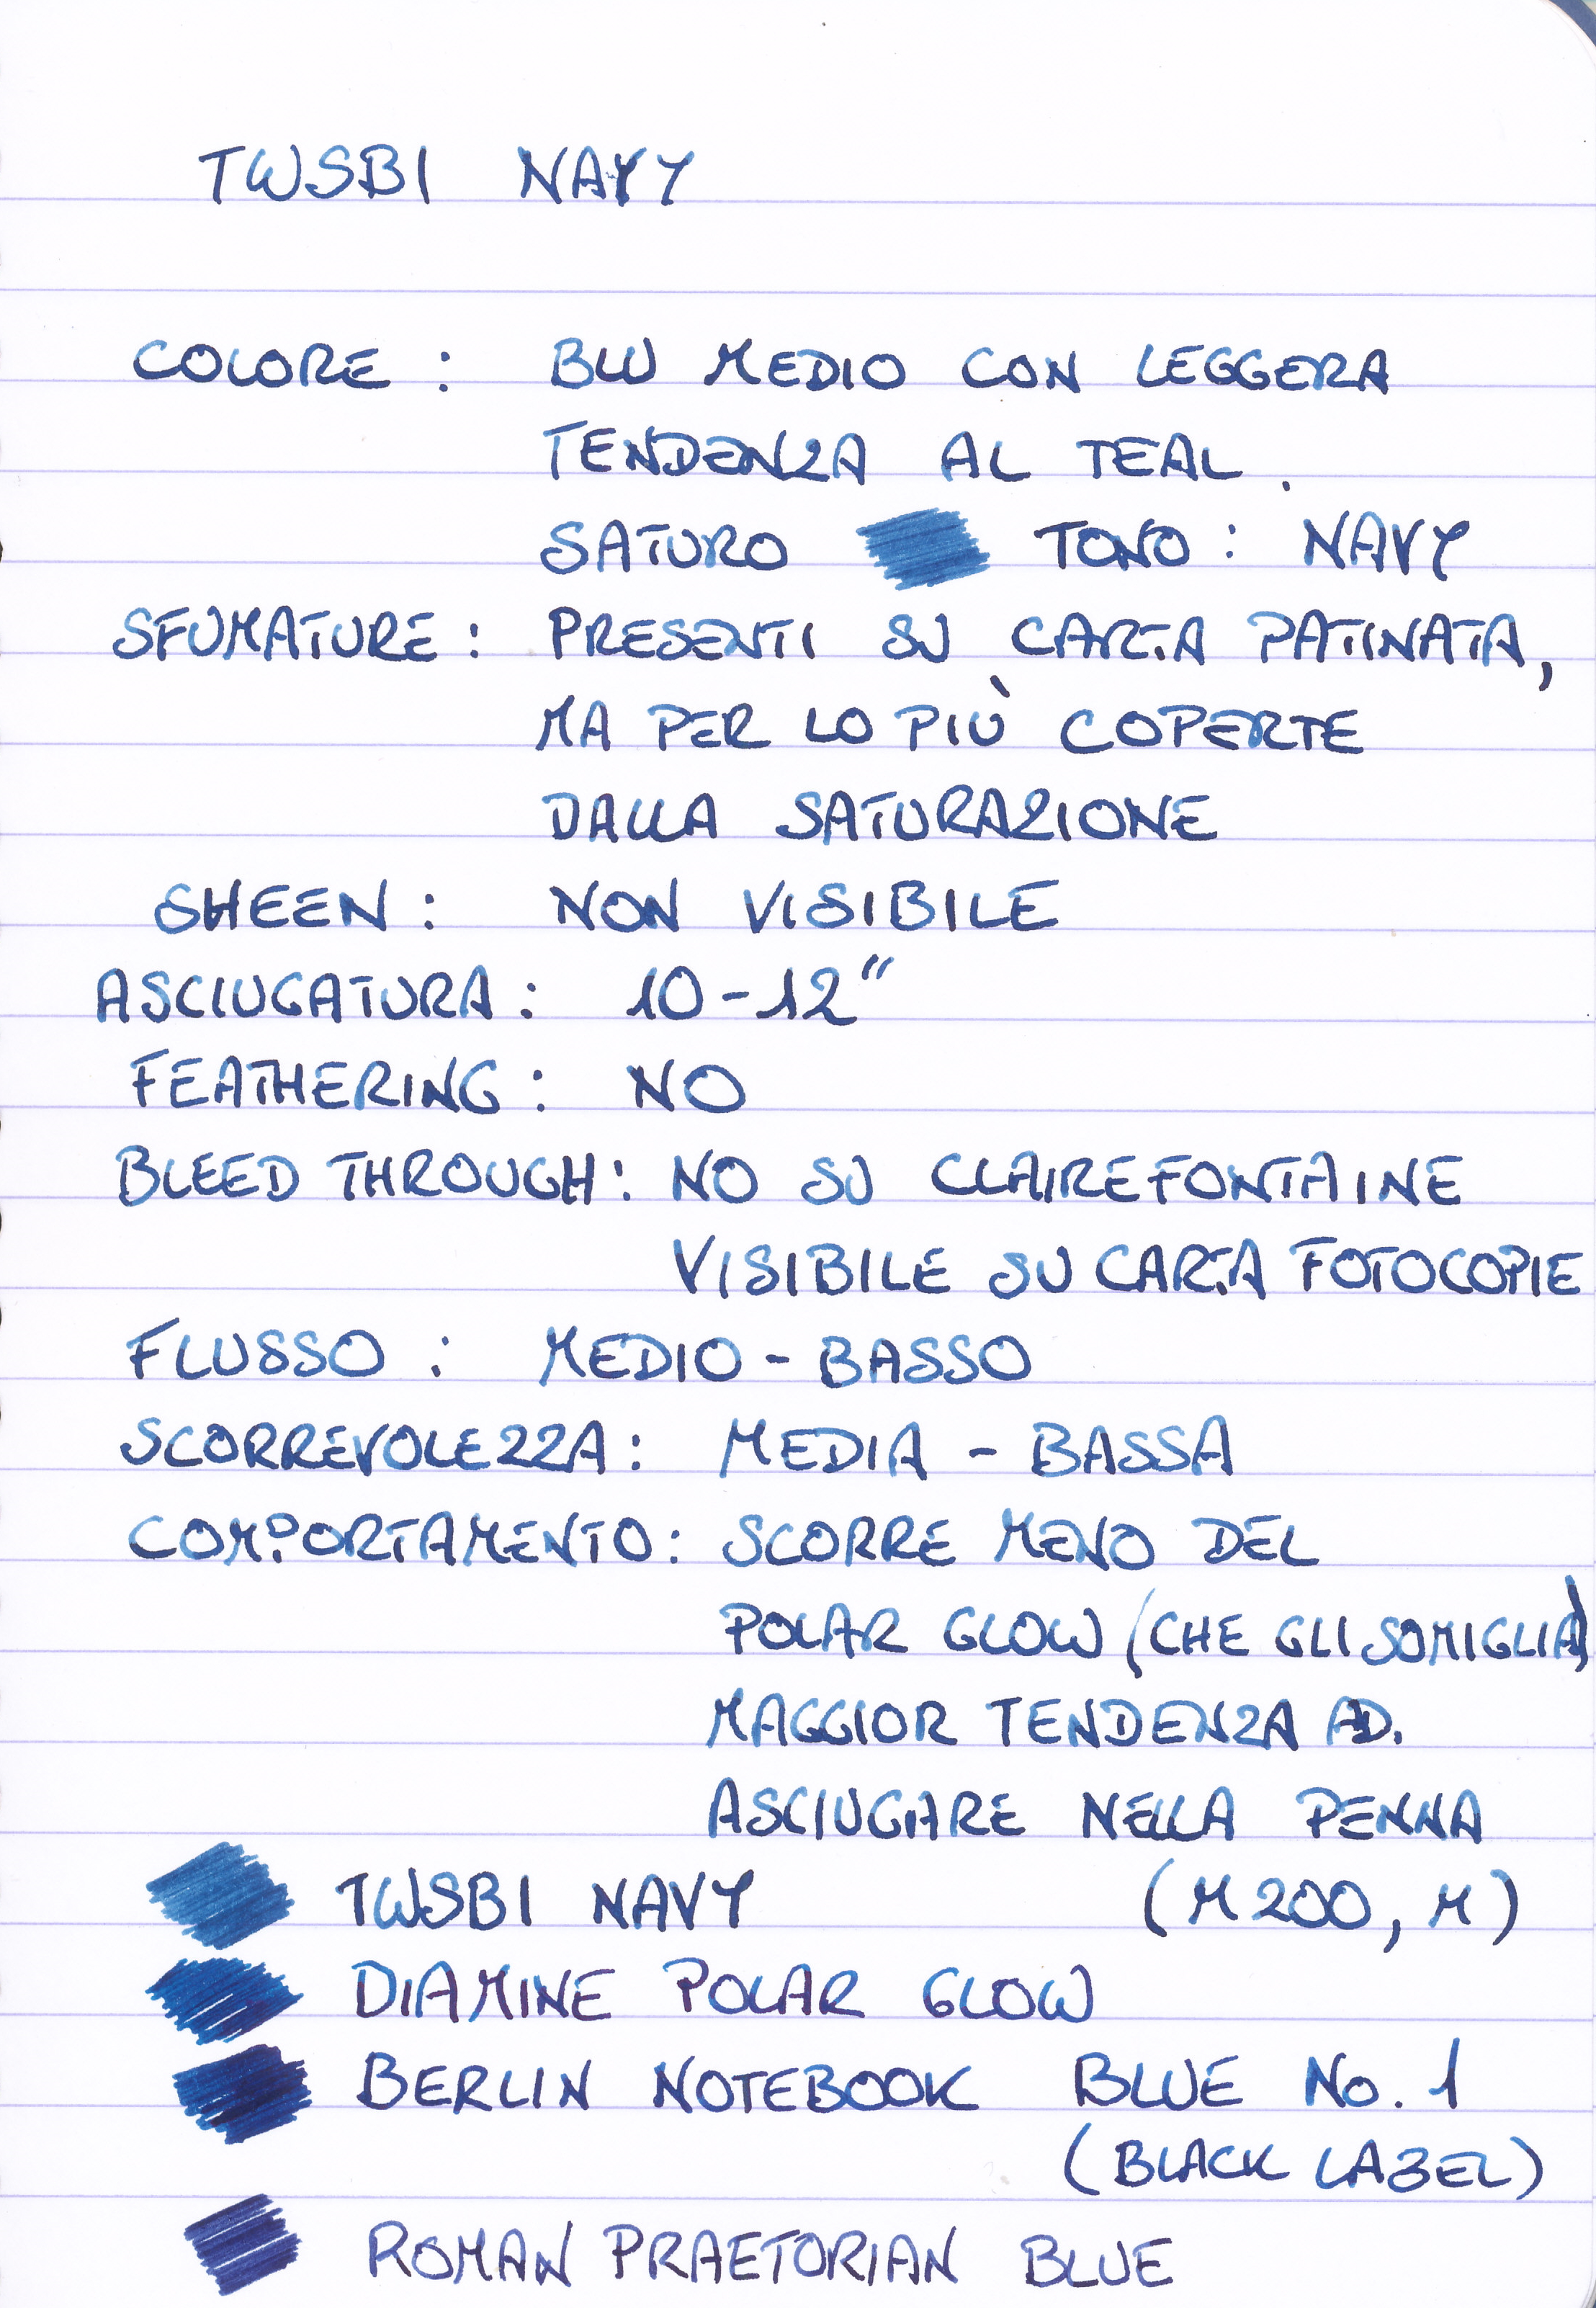 TWSBI NAVY
COLORE : BLU MEDIO CON LEGGERA
TENDENZA AL TEAL.
SATURO TONO : NAVY
SFUMATURE : PRESENTI SU CARTA PATINATA,
MA PER LO PIÙ COPERTE
DALLA SATURAZIONE
SHEEN : NON VISIBILE
ASCIUGATURA : 10-12"
FEATHERING : NO
BLEED THROUGH : NO SU CLAIREFONTAINE
VISIBILE SU CARTA FOTOCOPIE
FLUSSO : MEDIO - BASSO
SCORREVOLEZZA : MEDIA - BASSA
COMPORTAMENTO : SCORRE MENO DEL
POLAR GLOW (CHE GLI SOMIGLIA)
MAGGIOR TENDENZA AD.
ASCIUGARE NELLA PENNA
TWSBI NAVY (M200, M)
DIAMINE POLAR GLOW
BERLIN NOTEBOOK BLUE No. 1
(BLACK LABEL)
ROMAN PRAETORIAN BLUE